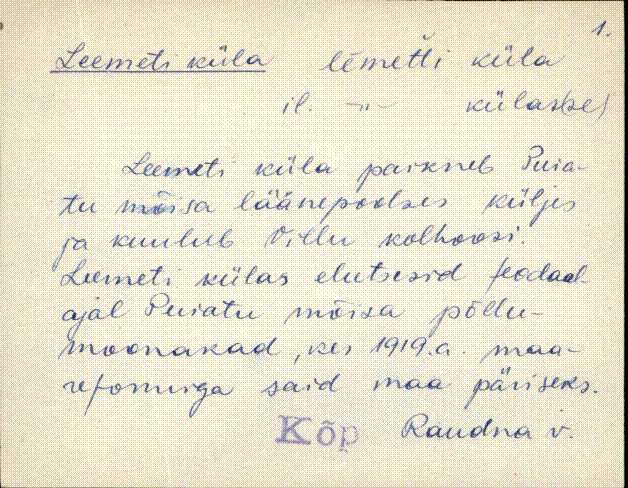 1.
Leemeti küla lēmetti küla
il. —"— külas(se)
Leemeti küla paikneb Puia-
tu mõisa läänepoolses küljes
ja kuulub Villu kolhoosi.
Leemeti külas elutsesid feodaal-
ajal Puiatu mõisa põllu-
moonakad, kes 1919.a. maa-
reformiga said maa päriseks.
Kõp Raudna v.